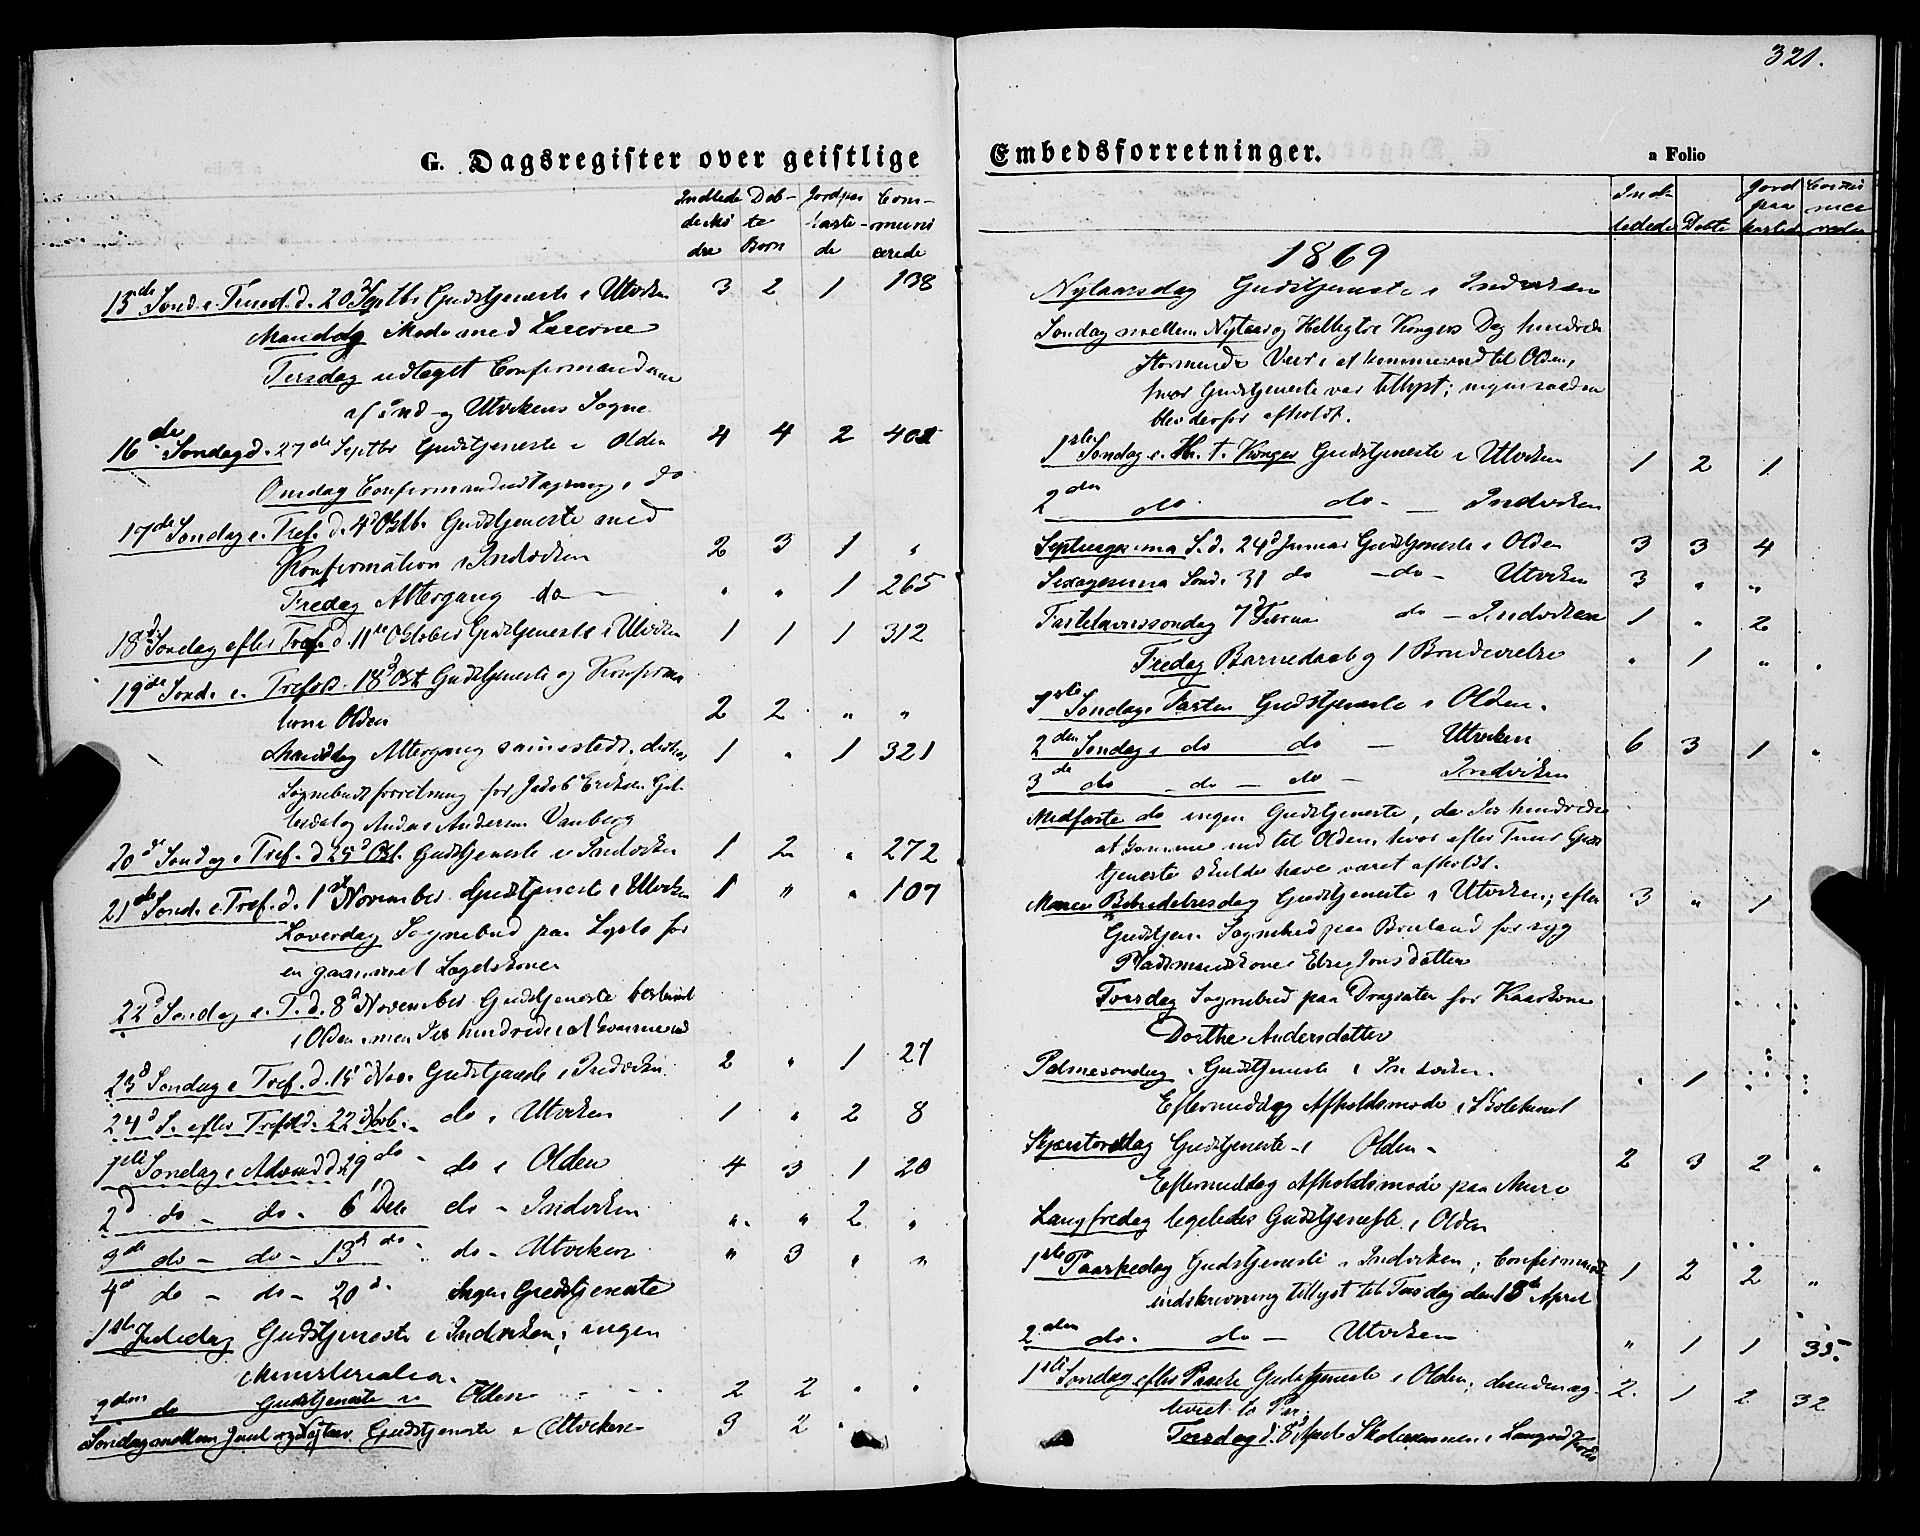 321.
G. Dagsregister over geistlige
Indlede Döb- Jordpaa Com-
de Mö te kaste- muni
dre Börn de cerede
15de Sönd. e. Trinit. d. 20d Septbr Gudstjeneste i Utviken 3 2 1 138
Mandag Möde med Lærerne
Tirsdag udtaget Confirmanderne
af Ind- og Utvikens Sogne
16de Söndag d. 27de Septbr Gudstjeneste i Olden 4 4 2
Onsdag Confirmandudtagning i do
17de Söndag e. Tref. d. 4d Octb. Gudstjeneste med
Konfirmation i Indviken 2 3 1 "
Fredag Altergang do " " 1 265
18de Söndag efter Tref. d. 11te October Gudstjeneste i Utviken 1 1 1 312
19de Sönd. e. Trefold. 18d Oct Gudstjeneste og Konfirma
tion i Olden 2 2 " "
Mandag Altergang sammesteds, 1 " 1 321
Sognebudsforretning for Jacob Eriksen
og Anders Andersen
20de Söndag e. Tref. d. 25d Oct. Gudstjeneste i Indviken 1 2 " 272
21de Sönd. e. Tref. d. 1ste November Gudstjeneste i Utviken 1 " " 107
Löverdag Sognebud paa for
en gammel Lægdskone
22d Söndag e. T. d. 8d November Gudstjeneste bestemt
i Olden, men Iis hindrede i at komme ind
23d Söndag e. Tref. d. 15d Nov. Gudstjeneste i Indviken 2 " 1 27
24d S. efter Trefold. 22d Novb. do i Utviken 1 " 2 8
1ste Söndag i Advend d. 29 do - do i Olden 4 3 1 20
2d do - do - 6d Dec do - Indviken " " 2 "
3de do - do - 13d do - do - Utviken " 3 " "
4d do - do - 20d Ingen Gudstjeneste
1ste Juledag Gudstjeneste i Indviken; ingen
Ministerialia.
2den do Gudstjeneste i Olden 2 2 " "
Söndag mellem Juul og Nytaar Gudstjeneste i Utviken 3 2 "
Embedsforretninger.
a Folio
Ind- Jord Commu
paa
ledede Döbte kastede
1869
Nytaarsdag Gudstjeneste i Indviken
Söndag mellem Nytaar og Helligtre Kongers Dag hindrede
stormende Veir i at komme ind til Olden,
hvor Gudstjeneste var tillyst; ingen saadan
blev derfor afholdt.
1ste Söndag e. H. t. Konger Gudstjeneste i Utviken 1 2 1
2den do do - Indviken
Septuagesima S. d. 24d Januar Gudstjeneste i Olden 3 3 4
Sexagesima Sönd. 31 do - do - Utviken 3 " "
Fastelavnssöndag 7d Februar do - Indviken 1 " 2
Fredag Barnedaab og 1 Brudevielse " 1 " "
1ste Söndag i Fasten Gudstjeneste i Olden.
2den Söndag i do do - Utviken 6 3 1 "
3de do - do - do - Indviken
Midfaste do ingen Gudstjeneste, da Iis hindrede
at komme ind til Olden, hvor efter Tuur Guds
tjeneste skulde have været afholdt.
Mariæ Bebudelsesdag Gudstjeneste i Utviken; efter 3 " 1
Gudstjen. Sognebud paa Bruland for syg
Pladsmandskone Jonsdatter
Torsdag Sognebud paa Dragsater for Kaarkone
Dorthe Andersdatter
Palmesöndag Gudstjeneste i Indviken. " 1
Eftermiddag Afholdsmöde i
Skjærtorsdag Gudstjeneste i Olden - 2 3 2 "
Eftermiddag Afholdsmöde paa Muri
Langfredag ligeledes Gudstjeneste i Olden
1ste Paaskedag Gudstjeneste i Indviken; Confirmand 1 2 2 "
indskrivning tillyst til Tirsdag den April
2den do. do - Utviken " 1 1 35.
1ste Söndag efter Paaske Gudstjeneste i Olden; desuden æg- 2 1 2 32
teviet to Par.
Torsdag d. 8d April